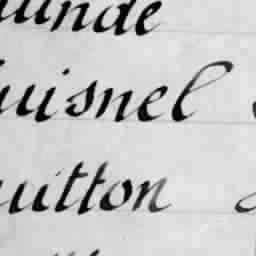 unde
uisnel
uitton